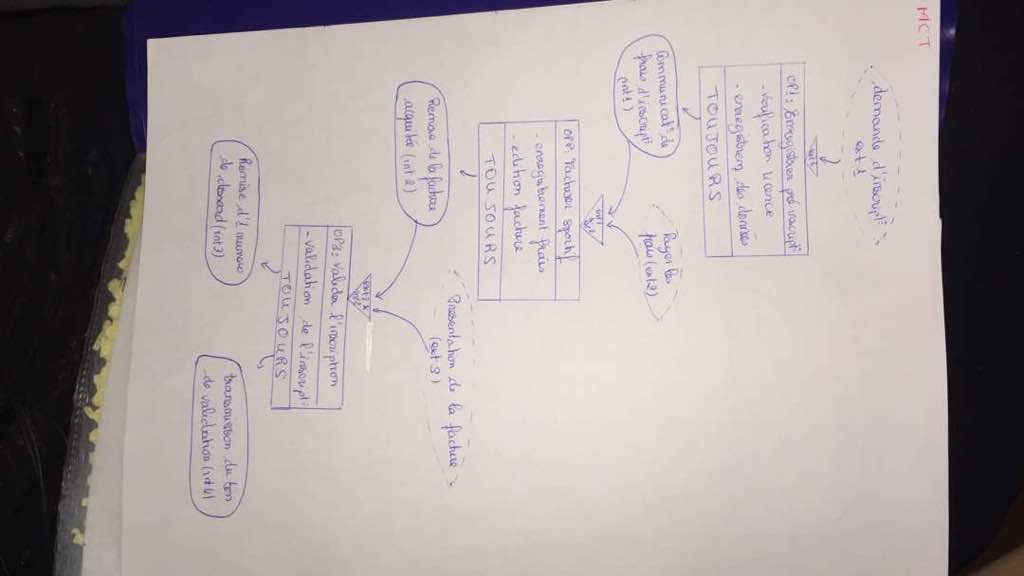 MCT
demande d'inscript°
ext 1
ext 1
OP1: Enregistrer pré inscript°
- vérification licence
- enregistrem des données
TOUJOURS
Communicat° de
frais d'inscript°
(int 1)
Payer les
frais (ext 2)
OP2: Facturer sportif
- enregistrement frais
- edition facture
TOUJOURS
Remise de la facture
acquitté (int 2)
Présentation de la facture
(ext 3)
OP3: Valider l'inscription
- validation de l'inscript°
TOUJOURS
Remise d'1 numero
de dossard (int 3)
transmission du bon
de validation (int 4)